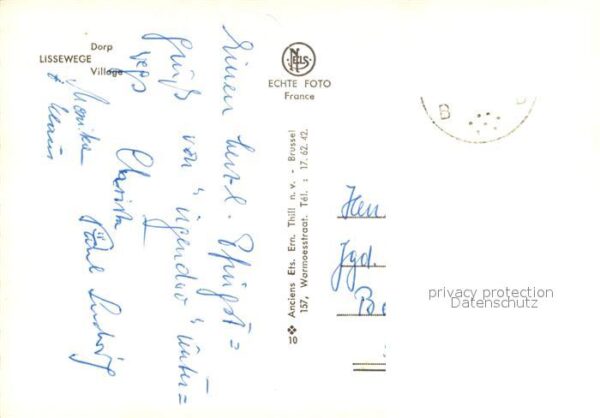 Dorp
LISSEWEGE
Village
NELS
ECHTE FOTO
France
Einen herzl. Pfingst=
gruß von "irgendwo" unter=
wegs
Christa
Paul Ludwig
Monika
+ Klaus
Anciens Ets. Ern. Thill n.v. - Brussel
157, Warmoesstraat. Tél. : 17.62.42.
10
B
Jgd.
privacy protection
Datenschutz